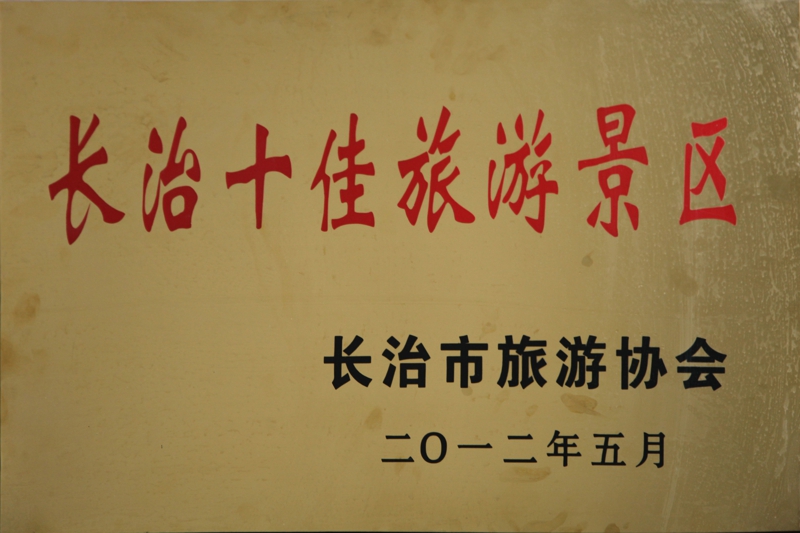 长治十佳旅游景区
长治市旅游协会
二〇一二年五月